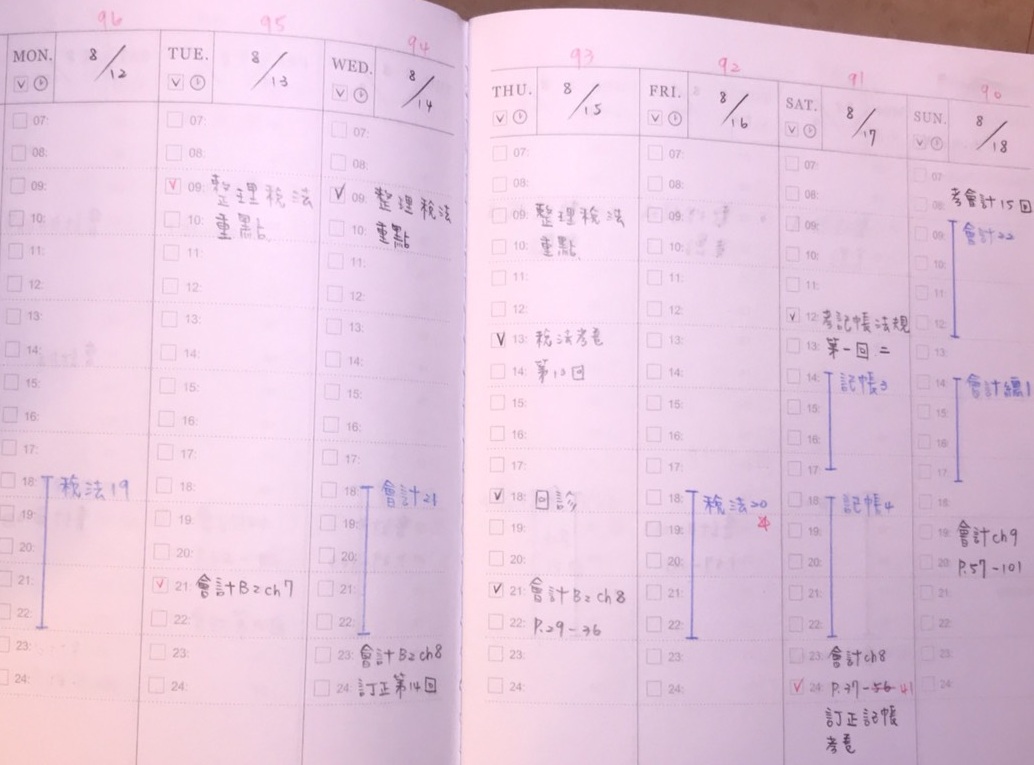 96
MON.
8/12
07:
08:
09:
10:
11:
12:
13:
14:
15:
16:
17:
18: 稅法19
19:
20:
21:
22:
23:
24:
95
TUE.
8/13
07:
08:
09: 整理稅法
10: 重點
11:
12:
13:
14:
15:
16:
17:
18:
19:
20:
21: 會計B2ch7
22:
23:
24:
94
WED.
8/14
07:
08:
09: 整理稅法
10: 重點
11:
12:
13:
14:
15:
16:
17:
18: 會計21
19:
20:
21:
22:
23: 會計B2ch8
24: 訂正第14回
93
THU.
8/15
07:
08:
09: 整理稅法
10: 重點
11:
12:
13: 稅法考卷
14: 第10回
15:
16:
17:
18: 回診
19:
20:
21: 會計B2ch8
22: P.29-36
23:
24:
92
FRI.
8/16
07:
08:
09:
10:
11:
12:
13:
14:
15:
16:
17:
18: 稅法20
19:
20:
21:
22:
23:
24:
91
SAT.
8/17
07:
08:
09:
10:
11:
12: 考記帳法規
13: 第一回 二
14: 記帳3
15:
16:
17:
18: 記帳4
19:
20:
21:
22:
23: 會計ch8
24: P.37-56 41
訂正記帳
考卷
90
SUN.
8/18
07:
08: 考會計15回
09: 會計22
10:
11:
12:
13:
14: 會計總1
15:
16:
17:
18:
19: 會計ch9
20: P.57-101
21:
22:
23:
24: